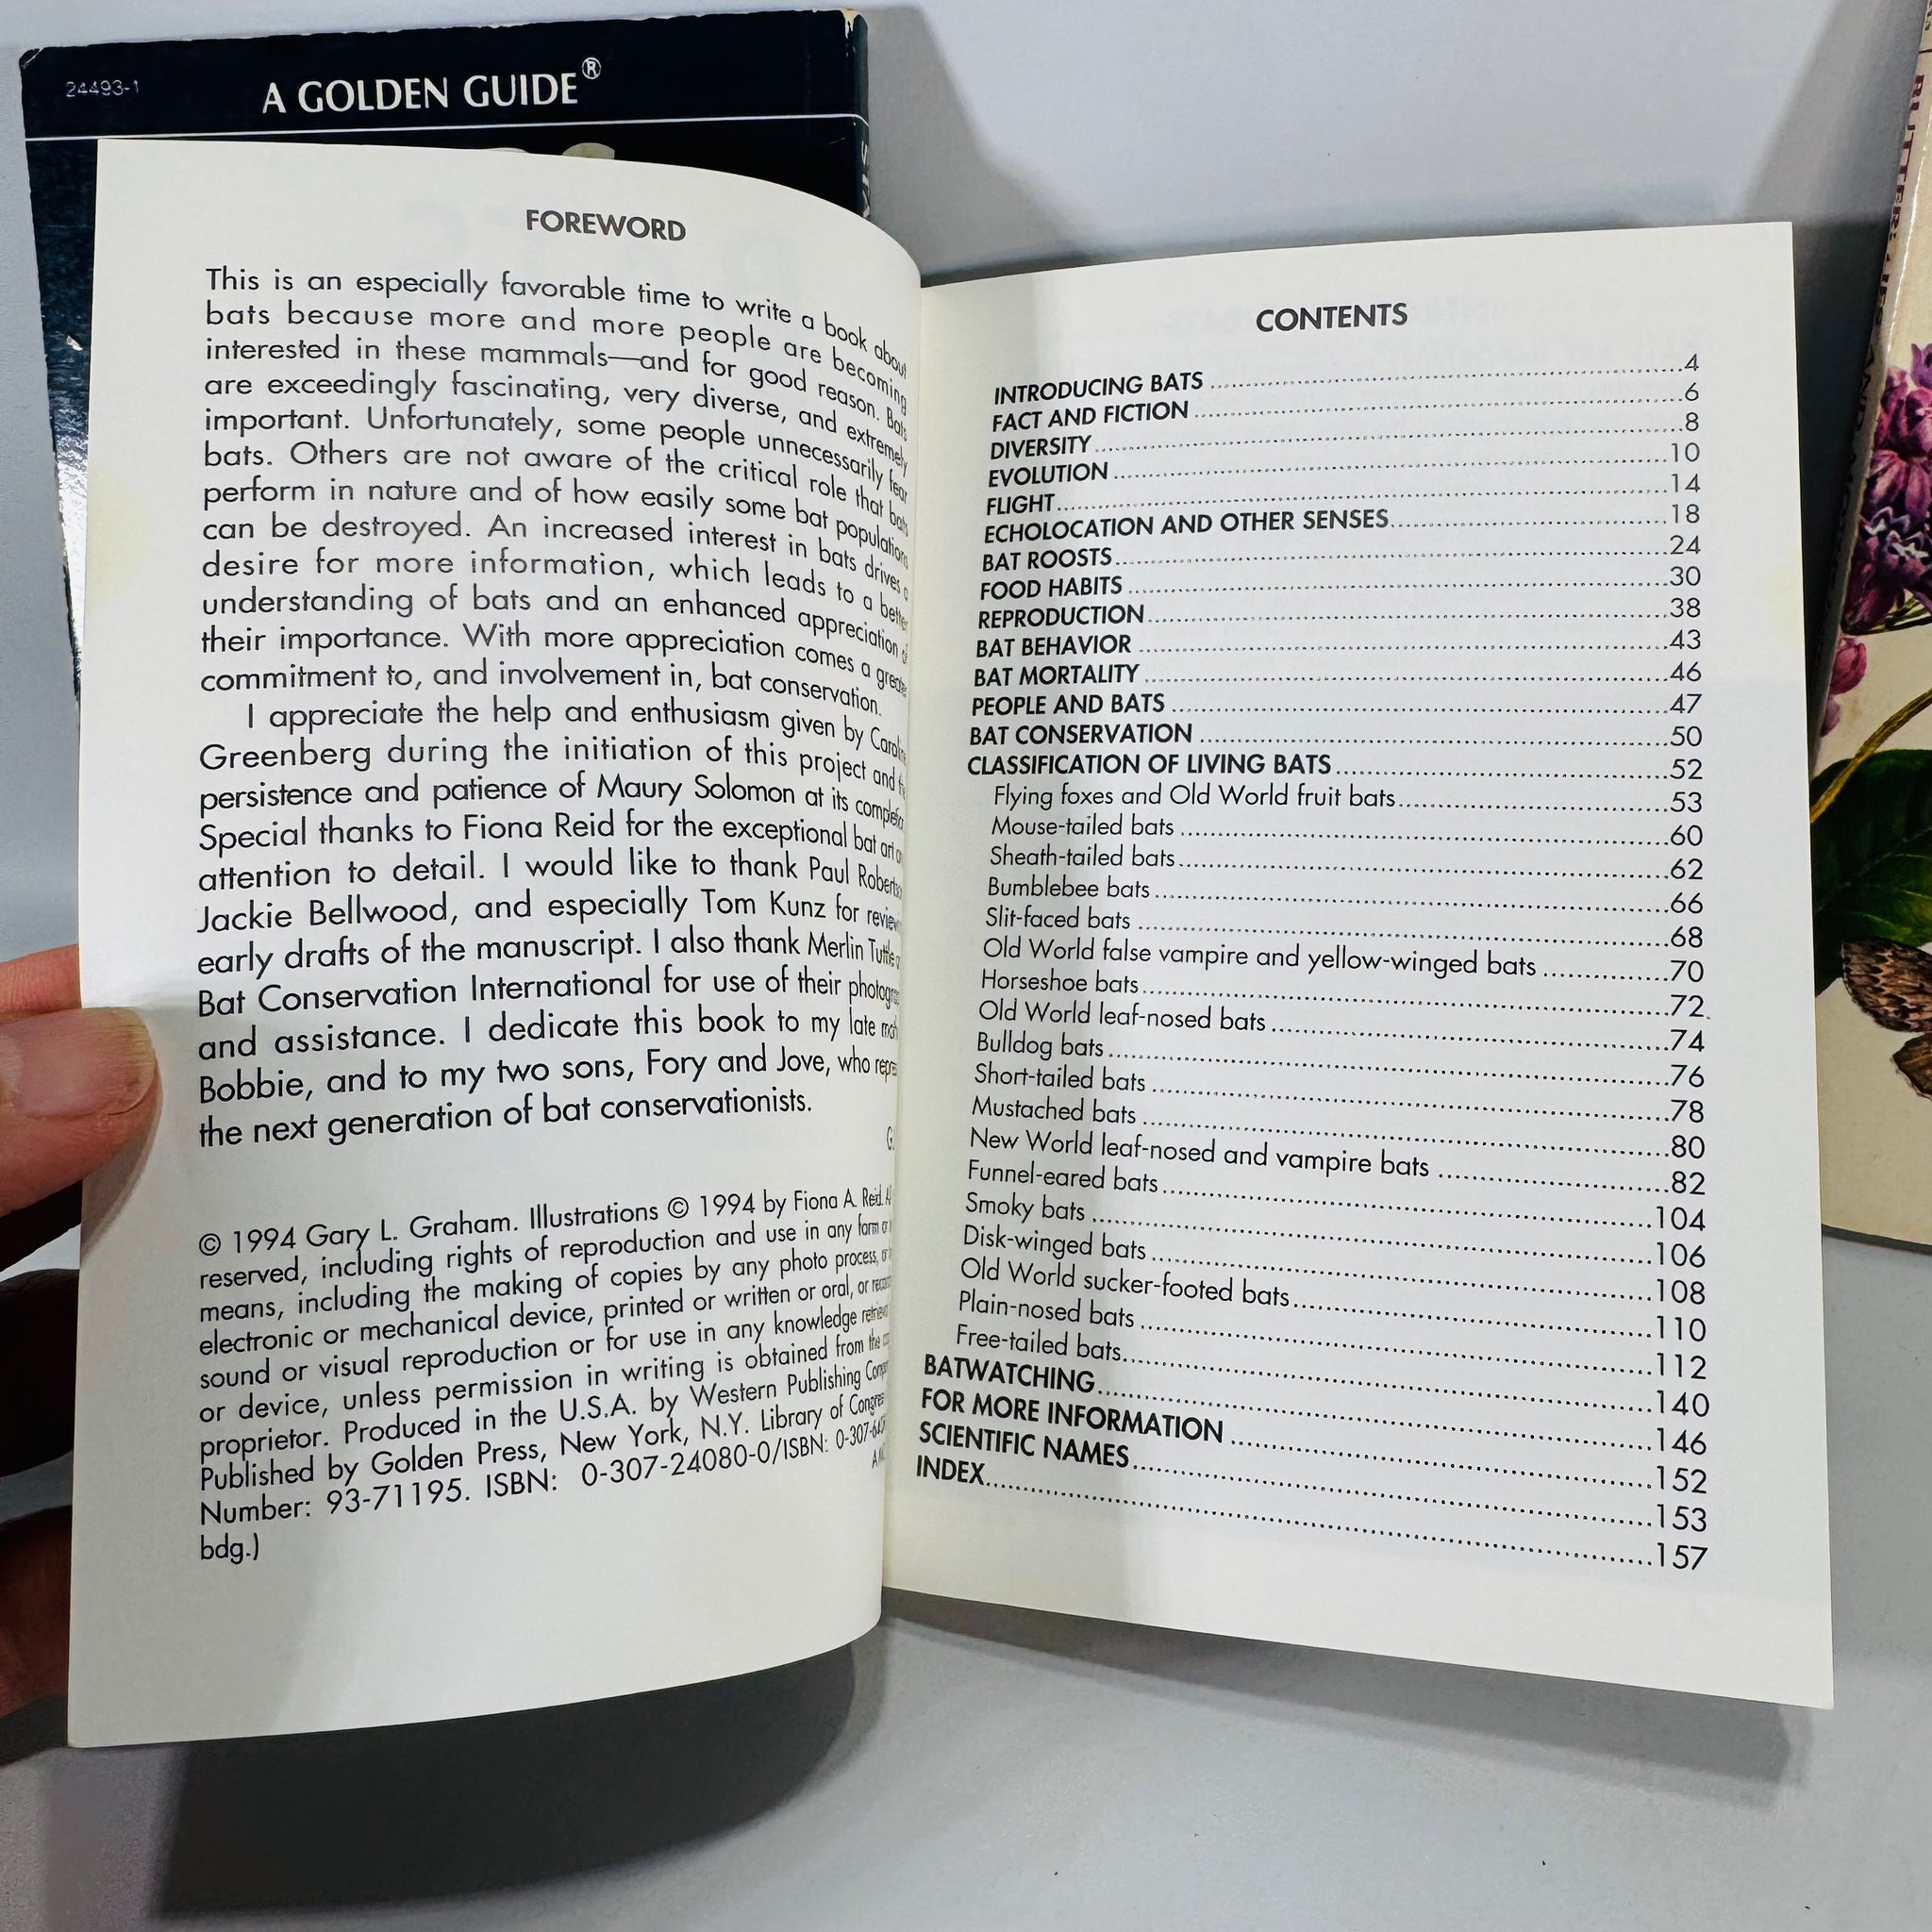 24493-1
A GOLDEN GUIDE®
FOREWORD
This is an especially favorable time to write a book about
bats because more and more people are becoming
interested in these mammals—and for good reason. Bats
are exceedingly fascinating, very diverse, and extremely
important. Unfortunately, some people unnecessarily fear
bats. Others are not aware of the critical role that bats
perform in nature and of how easily some bat populations
can be destroyed. An increased interest in bats drives a
desire for more information, which leads to a better
understanding of bats and an enhanced appreciation of
their importance. With more appreciation comes a greater
commitment to, and involvement in, bat conservation.
I appreciate the help and enthusiasm given by
Greenberg during the initiation of this project and
persistence and patience of Maury Solomon at its
Special thanks to Fiona Reid for the exceptional bat art
attention to detail. I would like to thank Paul
Jackie Bellwood, and especially Tom Kunz for
early drafts of the manuscript. I also thank Merlin Tuttle
Bat Conservation International for use of their
and assistance. I dedicate this book to my late
Bobbie, and to my two sons, Fory and Jove, who
the next generation of bat conservationists.
© 1994 Gary L. Graham. Illustrations © 1994 by Fiona A. Reid.
reserved, including rights of reproduction and use in any form
means, including the making of copies by any photo process,
electronic or mechanical device, printed or written or oral, or
sound or visual reproduction or for use in any knowledge
or device, unless permission in writing is obtained from the
proprietor. Produced in the U.S.A. by Western Publishing
Published by Golden Press, New York, N.Y. Library of
Number: 93-71195. ISBN: 0-307-24080-0/ISBN:
bdg.)
CONTENTS
INTRODUCING BATS ..... 4
FACT AND FICTION ..... 6
DIVERSITY ..... 8
EVOLUTION ..... 10
FLIGHT ..... 14
ECHOLOCATION AND OTHER SENSES ..... 18
BAT ROOSTS ..... 24
FOOD HABITS ..... 30
REPRODUCTION ..... 38
BAT BEHAVIOR ..... 43
BAT MORTALITY ..... 46
PEOPLE AND BATS ..... 47
BAT CONSERVATION ..... 50
CLASSIFICATION OF LIVING BATS ..... 52
Flying foxes and Old World fruit bats ..... 53
Mouse-tailed bats ..... 60
Sheath-tailed bats ..... 62
Bumblebee bats ..... 66
Slit-faced bats ..... 68
Old World false vampire and yellow-winged bats ..... 70
Horseshoe bats ..... 72
Old World leaf-nosed bats ..... 74
Bulldog bats ..... 76
Short-tailed bats ..... 78
Mustached bats ..... 80
New World leaf-nosed and vampire bats ..... 82
Funnel-eared bats ..... 104
Smoky bats ..... 106
Disk-winged bats ..... 108
Old World sucker-footed bats ..... 110
Plain-nosed bats ..... 112
Free-tailed bats ..... 140
BATWATCHING ..... 146
FOR MORE INFORMATION ..... 152
SCIENTIFIC NAMES ..... 153
INDEX ..... 157